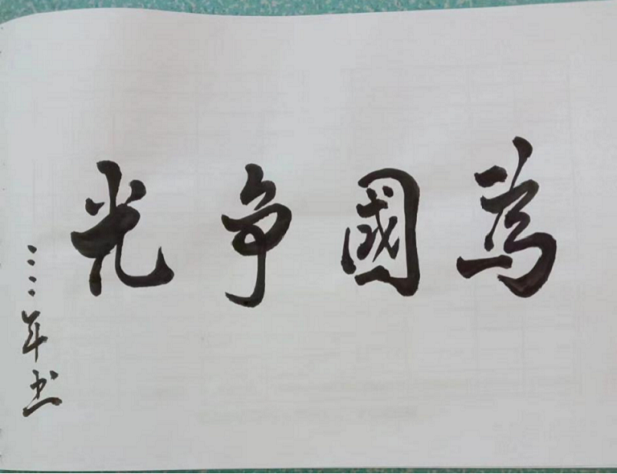 為國争光
二二年书